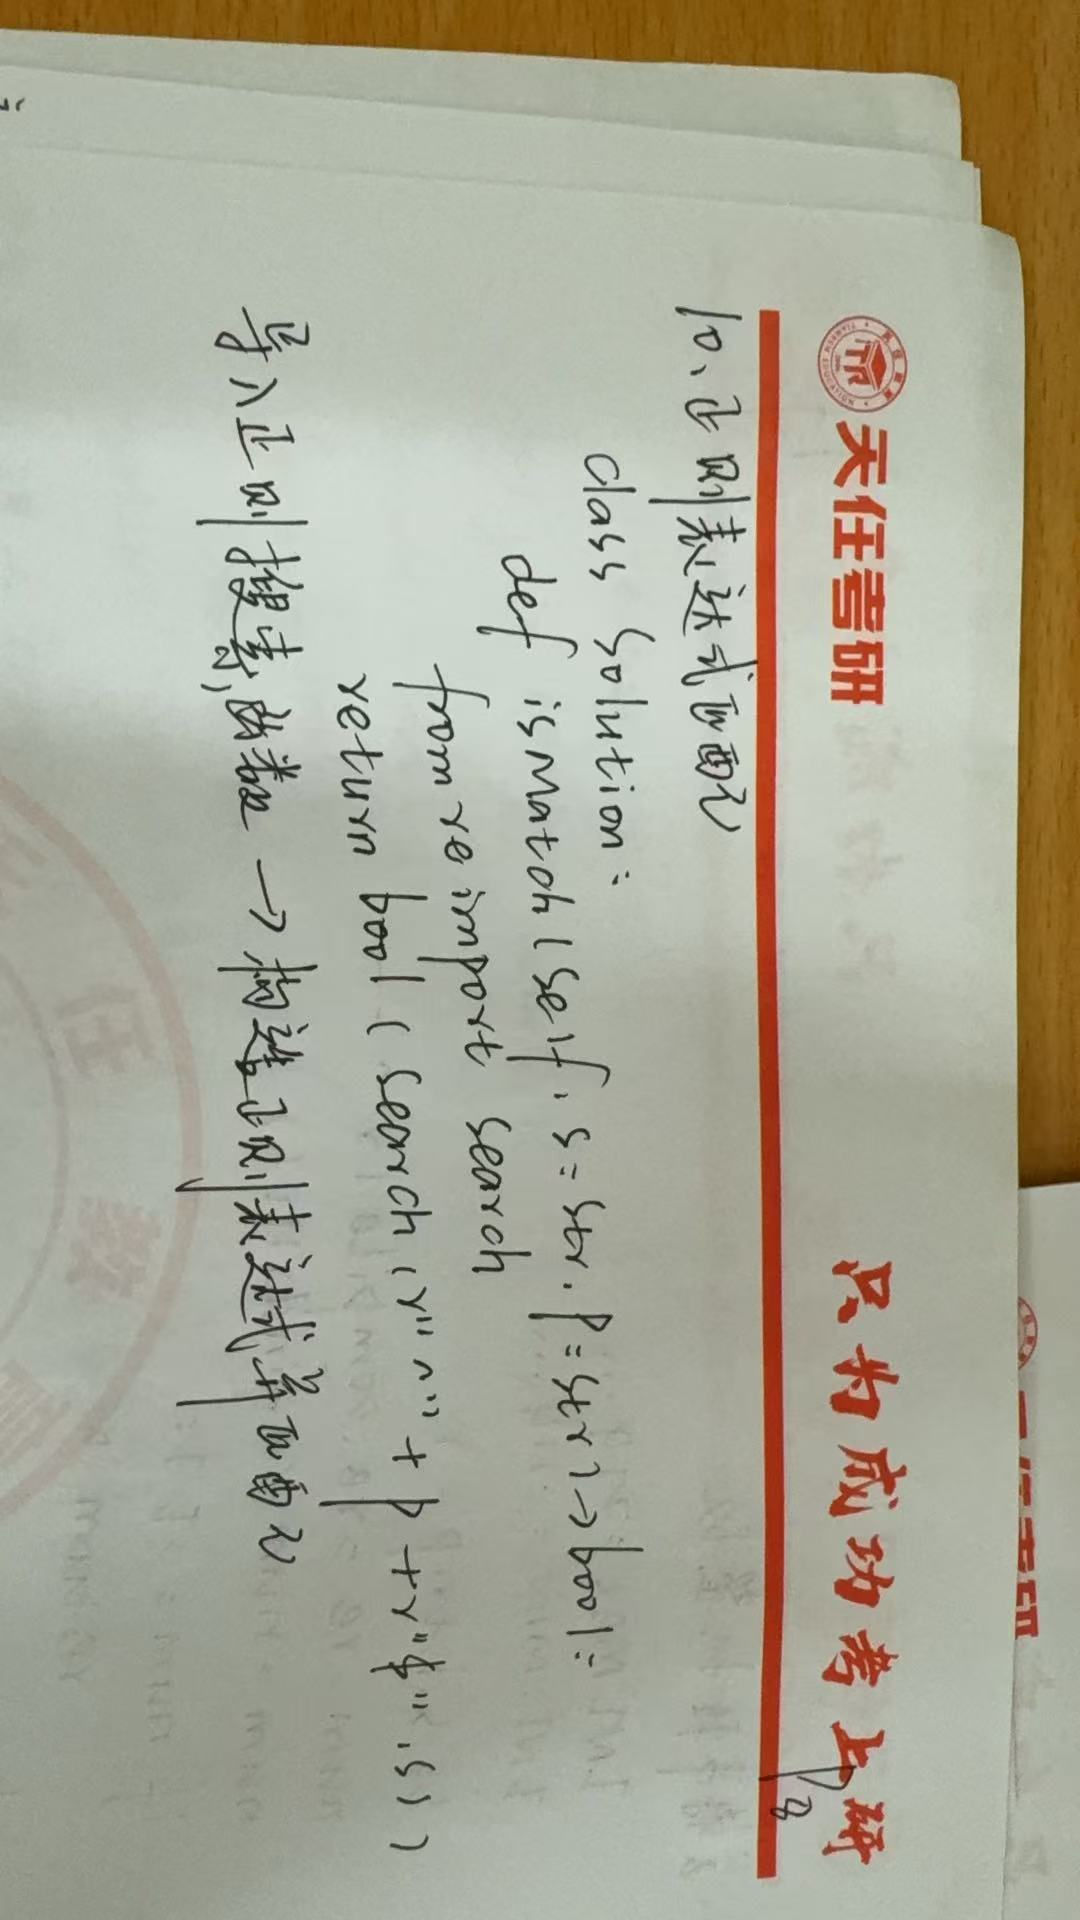 天任考研 只为成功考上研
P8
10、正则表达式匹配
class Solution:
def isMatch(self, s=str, p=str)->bool:
from re import search
return bool(search(r"^"+p+r"$",s))
导入正则搜索函数→构造正则表达式并匹配